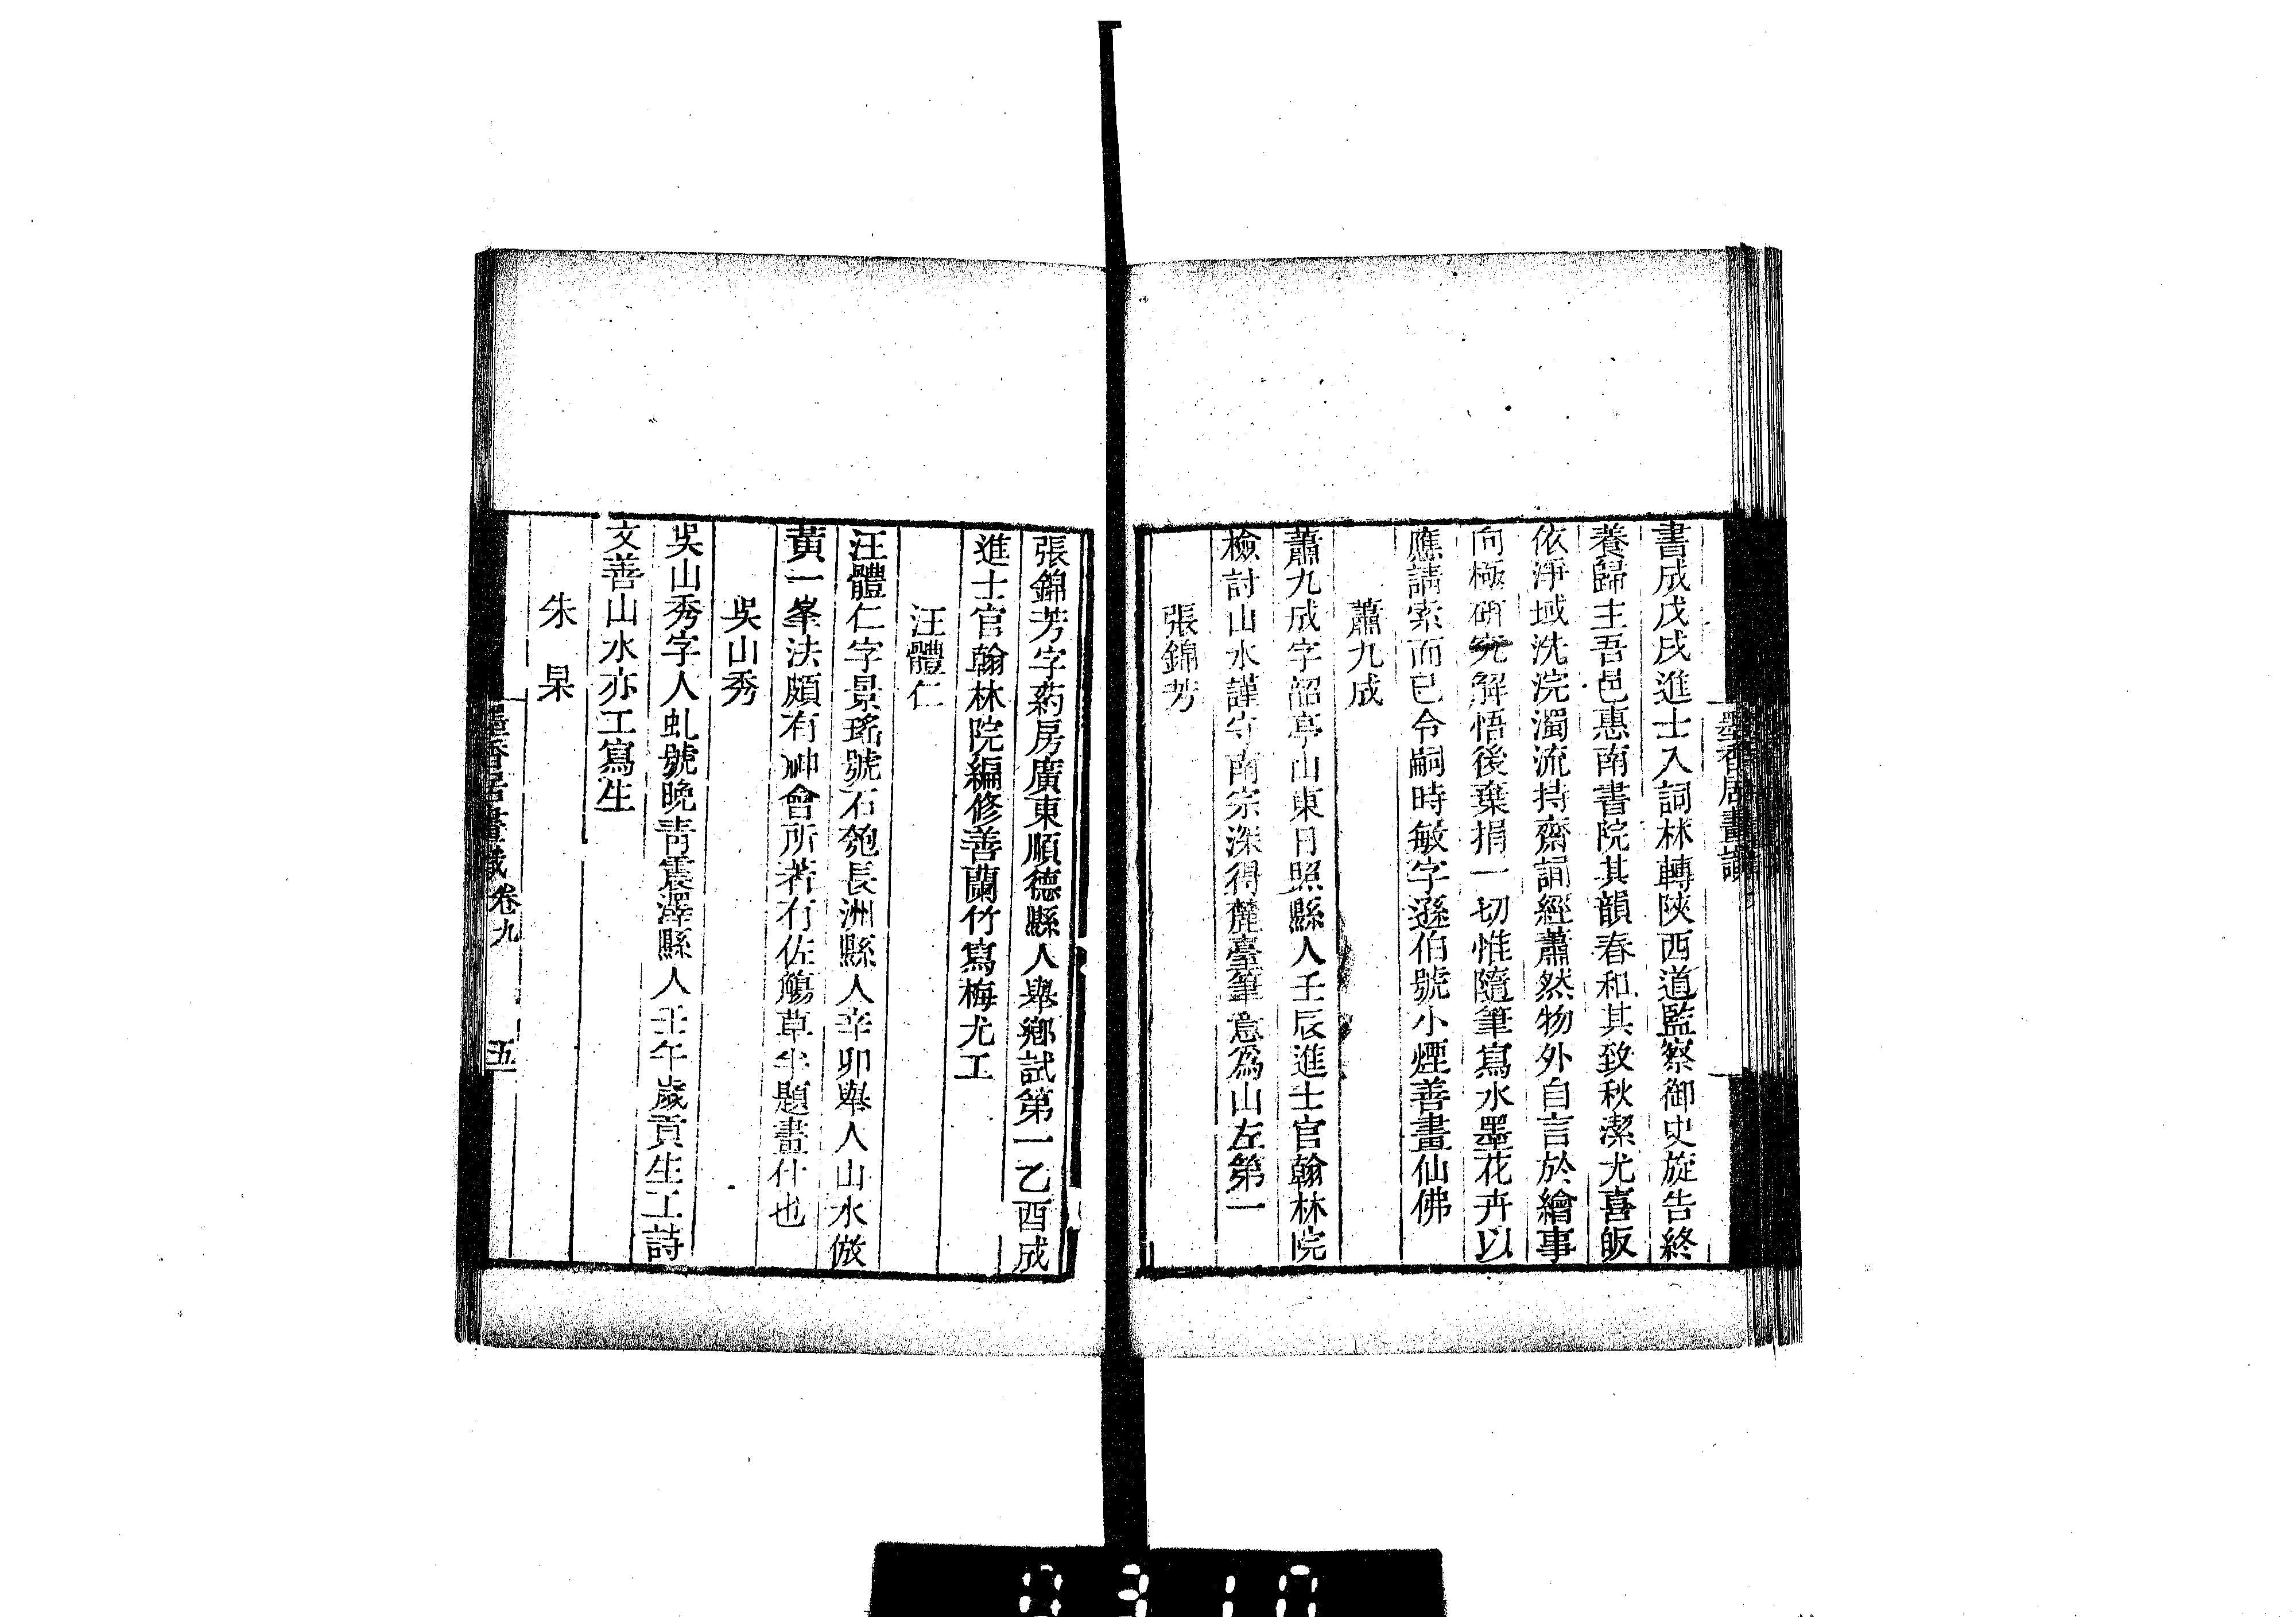 墨香居畫識
書成戊戌進士入詞林轉陝西道監察御史旋告終
養歸主吾邑惠南書院其韻春和其致秋潔尤喜皈
依淨域洗浣濁流持齋誦經蕭然物外自言於繪事
向極硏究解悟後棄捐一切惟隨筆寫水墨花卉以
應請索而已令嗣時敏字遜伯號小煙善畫仙佛
蕭九成
蕭九成字韶亭山東日照縣人壬辰進士官翰林院
檢討山水謹守南宗深得麓臺筆意爲山左第一
張錦芳
張錦芳字葯房廣東順德縣人舉鄉試第一乙酉成
進士官翰林院編修善蘭竹寫梅尤工
汪體仁
汪體仁字景瑤號石匏長洲縣人辛卯舉人山水倣
黃一峯法頗有神會所著有佐觴草半題畫什也
吳山秀
吳山秀字人虬號晚青震澤縣人壬午歲貢生工詩
文善山水亦工寫生
朱杲
墨香居畫識 卷九 五
0310